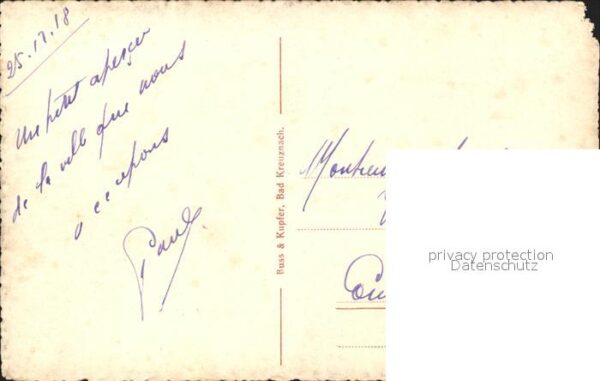 25.12.18
Un petit aperçu
de la ville que nous
occupons
Paul
Buss & Kupfer, Bad Kreuznach.
privacy protection
Datenschutz